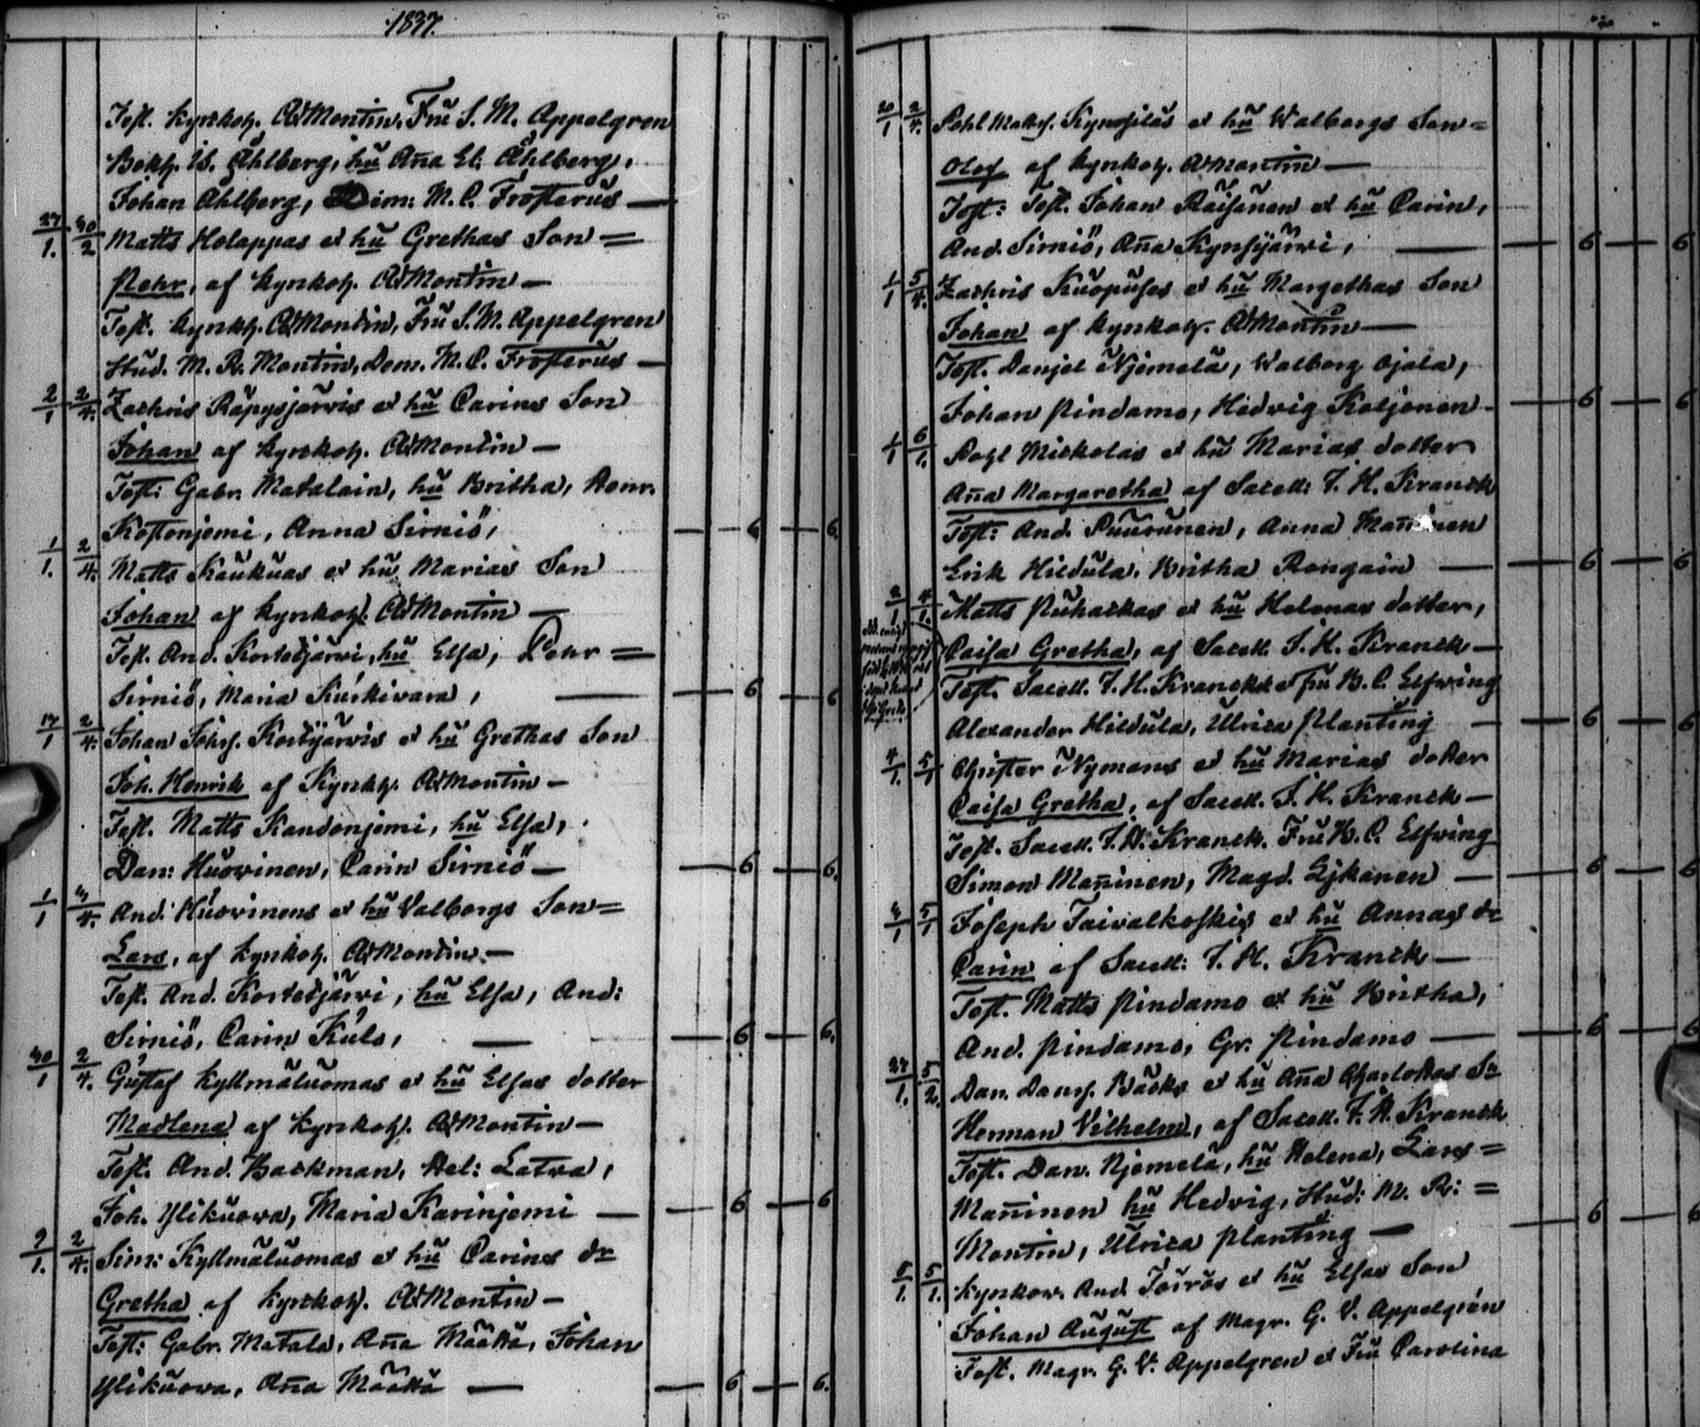 1837.
Test. Kyrkoh. A Montin, Fru S. M. Appelgren
Bokh. Is. Åhlberg, hu Aña El. Åhlberg,
Johan Åhlberg, Dem: M. C. Frosterus —
27/1. 30/2 Matts Holappas et hu Grethas Son =
Pehr, af Kyrkoh. A Montin —
Test. Kyrkh. A Montin, Fru S. M. Appelgren
Stud. M. R. Montin, Dem. M. C. Frosterus —
2/1 2/4. Zachris Räpysjärvis et hu Carins Son
Johan af Kyrkoh. A Montin —
Test: Gabr. Matalain, hu Britha, Henr.
Kostonjemi, Anna Sirniö, — 6 — 6.
1/1. 2/4. Matts Kaukuas et hu Marias Son
Johan af Kyrkoh. A Montin —
Test. And. Kortetjärvi, hu Elsa, Pehr =
Sirniö, Maria Kurkivara, — 6 — 6
17/1 2/4. Johan Johs. Kortejärvis et hu Grethas Son
Joh. Henrik af Kyrkh. A Montin —
Test. Matts Kandonjemi, hu Elsa,
Dan: Huovinen, Carin Sirniö — 6 — 6.
1/1 /4. And. Huovinens et hu Valborgs Son =
Lars, af Kyrkoh. A Montin. —
Test. And. Kortetjärvi, hu Elsa, And:
Sirniö, Carin Kulo, — 6 — 6.
30/1 2/4. Gustaf Kyllmäluomas et hu Elsas dotter
Madlena af Kyrkoh. A Montin —
Test. And. Backman, Hel: Latva,
Joh. Ylikuova, Maria Karinjemi — 6 — 6
9/1. 2/4. Sim: Kyllmäluomas et hu Carins dr
Gretha af Kyrkoh. A Montin —
Test: Gabr. Matala, Aña Määttä, Johan
Ylikuova, Aña Määttä — 6 — 6.
20/1 2/4. Pehl Matts. et hu Walborgs Son =
Olof af Kyrkoh. A Montin —
Test: Johan Räisänen et hu Carin,
And. Sirniö, Aña — 6 — 6
1/1 5/4. Zachris et hu Margethas Son
Johan af Kyrkoh. A Montin —
Test. Daniel Njemelä, Walborg Ojala,
Johan Pindamo, Hedvig Koljonen — 6 — 6
1/1 6/1. Mickolas et hu Marias dotter
Aña Margaretha af Sacell: J. H. Kranck
Test: And. Puurunen, Anna Mañinen
Erik Hildula, Britha Rongain — 6 — 6
2/1 4/1. Matts Puhackas et hu Helenas dotter,
Caisa Gretha, af Sacell. J. H. Kranck —
Test. Sacell. J. H. Kranck et Fru B. C. Elfving
Alexander Hildula, Ulrica Planting — 6 — 6
4/1. 5/1 Christer Nymans et hu Marias dotter
Caisa Gretha, af Sacell. J. H. Kranck —
Test. Sacell. J. H. Kranck. Fru B. C. Elfving
Simon Mañinen, Magd. Lykänen — 6 — 6
4/1 5/1 Joseph Taivalkoskis et hu Annas dr
Carin af Sacell: J. H. Kranck —
Test. Matts Pindamo et hu Britha,
And. Pindamo, Gr. Pindamo — 6 — 6
27/1. 5/2. Dan. Dans. Bäcks et hu Aña Charlottas Sn
Herman Vilhelm, af Sacell. J. H. Kranck
Test. Dan. Njemelä, hu Helena, Lars =
Mañinen hu Hedvig, Stud: M. R: = 6 — 6
Montin, Ulrica Planting —
5/1. Kyrkov. And. et hu Elsas Son
Johan August af Magr. G. V. Appelgrén
Test. Magr. G. V. Appelgren et Fru Carolina